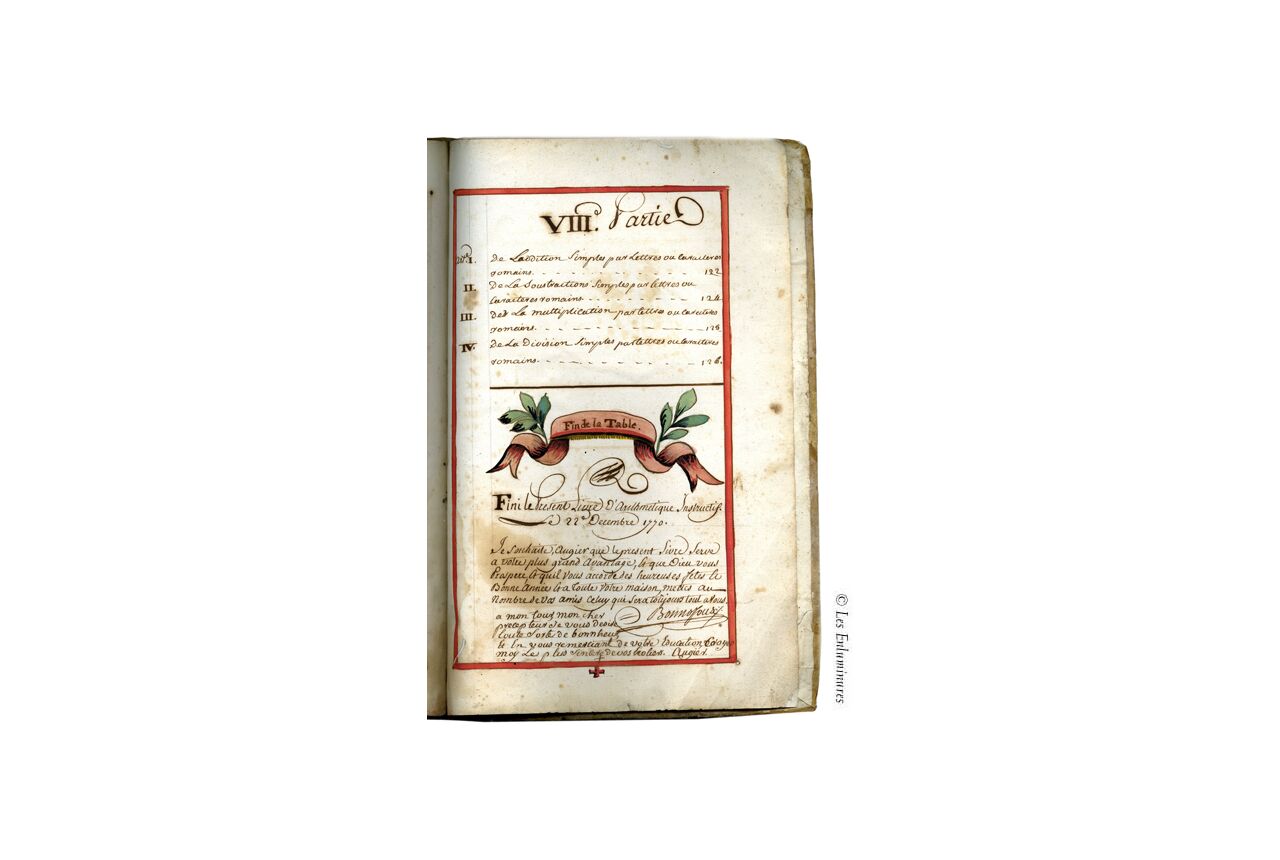 VIII.e Partie
Are. I. De Laddition Simples par Lettres ou Caracteres
romains. 122
II. De La Soustractions Simples par lettres ou
Caractères romains. 124
III. De La multiplication par lettres ou Caractères
romains. 125
IV. De La Division Simples par lettres ou Caractères
romains. 126.
Fin de la Table.
Fini le Present Livre D'Arithmetique Instructif.
Le 22e Decembre 1770.
Je Souhaite, Augier que le present Livre Serve
a votre plus grand Avantage, et que Dieu vous
Prospere, et quil vous accorde des heureuses fetes et
Bonne Année et a toute votre maison, mettés au
Nombre de vos amis Celuy qui sera toujours tout a vous
Bonnofoux
a mon tour mon cher
precepteur Je vous desire
toute sorte de bonnheur
et En vous remerciant de votre Education Croyés
moy Le plus Sincere de vos Ecoliers. Augier.
© Les Enluminures